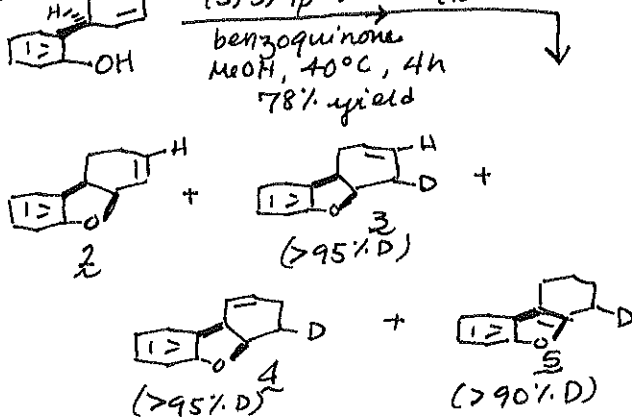 H
OH
benzoquinone
MeOH, 40°C, 4h
78% yield
H
O
2
+
H
D
O
3
(>95% D)
+
D
O
4
(>95% D)
+
D
O
5
(>90% D)